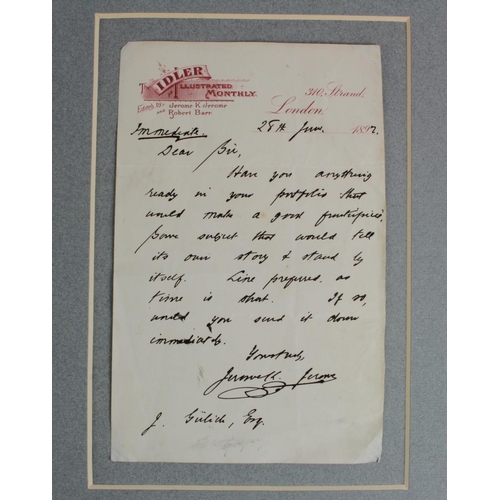 The IDLER
ILLUSTRATED
MONTHLY.
Edited By Jerome K. Jerome
and Robert Barr.
310, Strand,
London,
Immediate.
28th June 1892.
Dear Sir,
Have you anything
ready in your portfolio that
would make a good frontispiece,
Some subject that would tell
its own story & stand by
itself. Line preferred as
time is short. If so,
would you send it down
immediately.
Yours truly,
Jerome K. Jerome
J. Gülich, Esq.